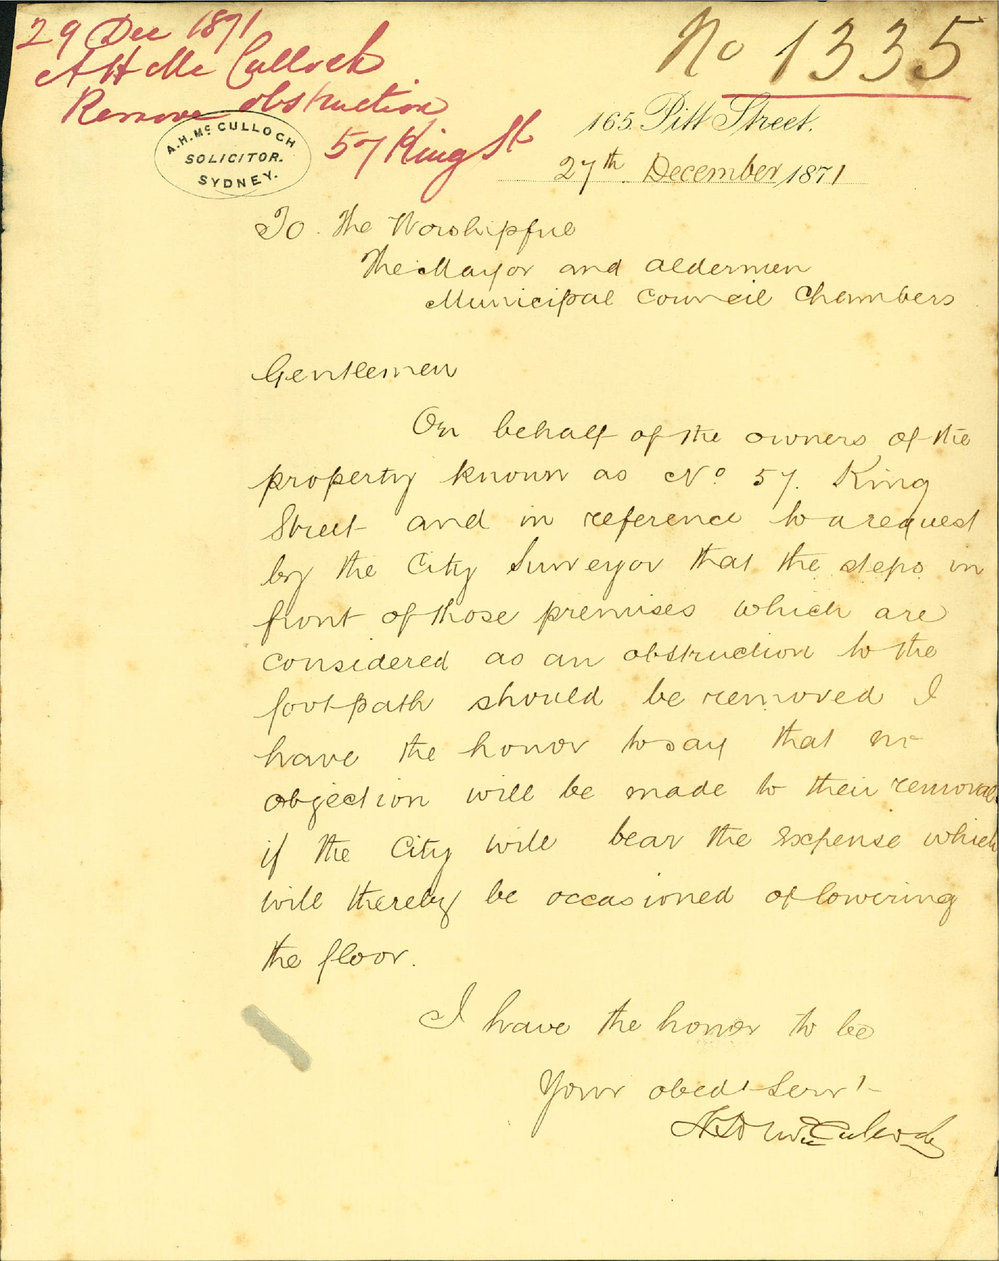 29 Dec 1871
A H Mc Culloch
Remove obstruction
57 King St
No 1335
A.H. Mc CULLOCH
SOLICITOR.
SYDNEY.
165 Pitt Street.
27th December 1871
To the Worshipful
The Mayor and aldermen
Municipal Council Chambers
Gentlemen
On behalf of the owners of the
property known as No 57. King
Street and in reference to a request
by the City Surveyor that the steps in
front of those premises which are
considered as an obstruction to the
footpath should be removed I
have the honor to say that no
objection will be made to their removal
if the City will bear the expense which
will thereby be occasioned of lowering
the floor.
I have the honor to be
Your obedt Servt
A H McCulloch